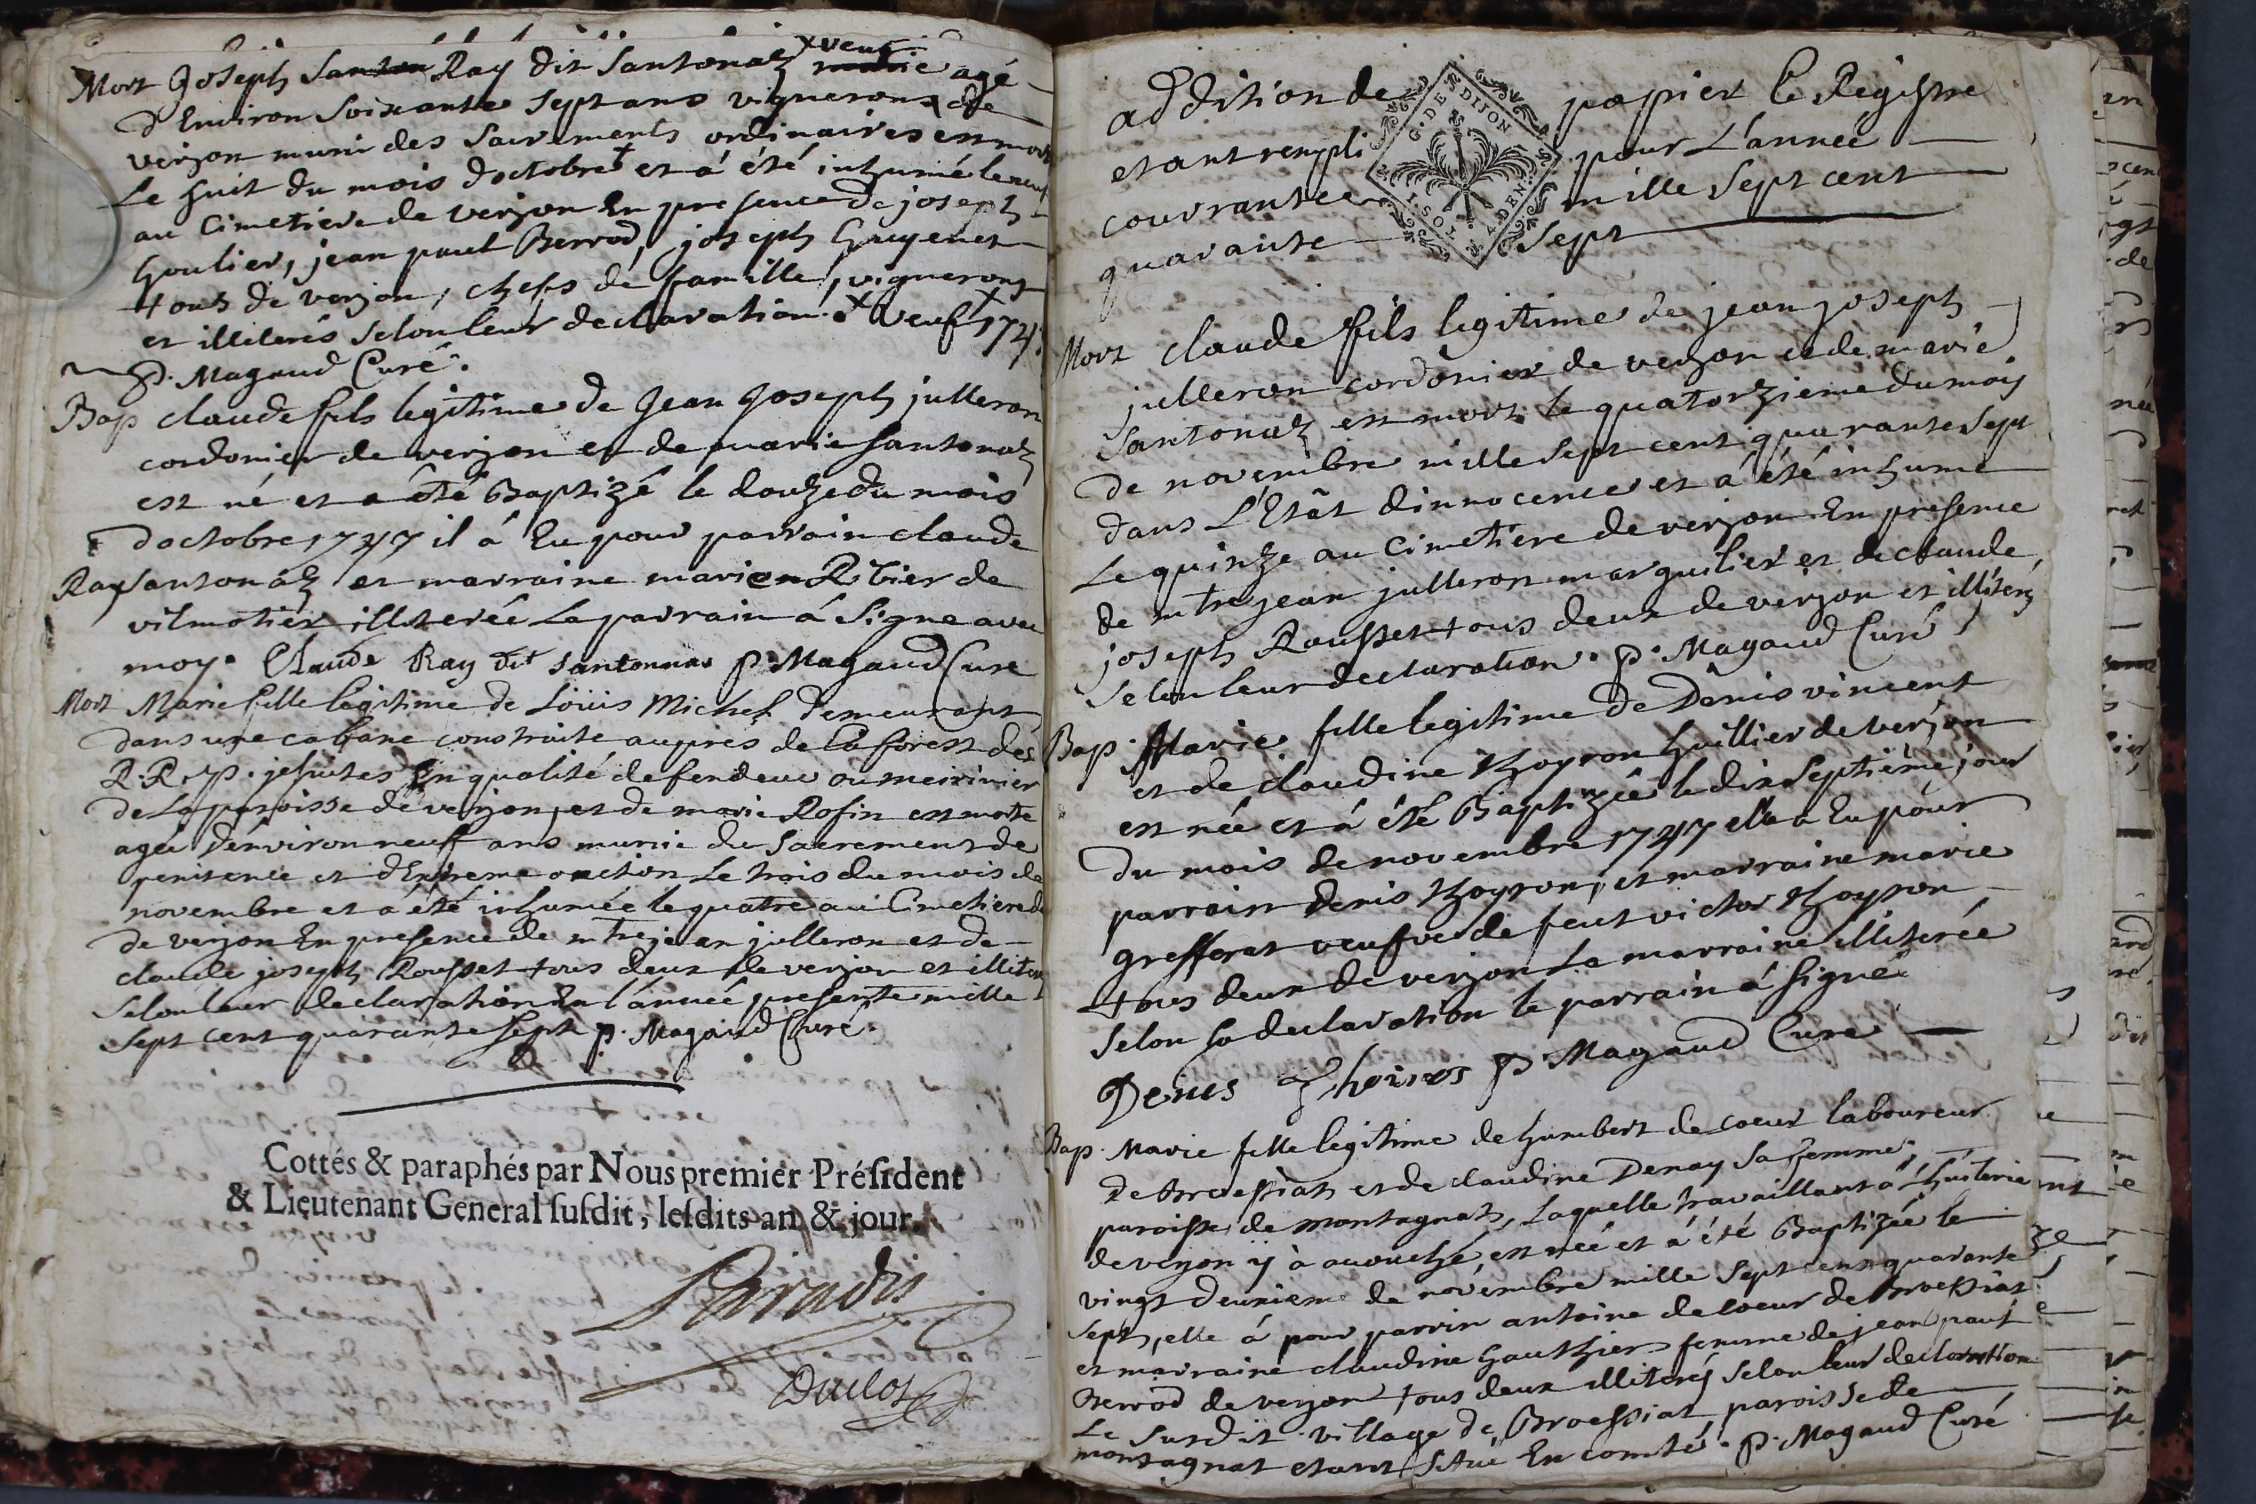 Mort Joseph Santon Ray dit Santonaz marié xveuf agé
d'Environ soixante sept ans vigneron de
verjon muni des Sacrements ordinaires est mort
Le huit du mois doctobre + et á été inhumé le neuf
au Cimetiere de verjon En presence de joseph
Goulier, jean paul Berrod, joseph Guyenet
tous de verjon, chefs de famille, vignerons
et illiterés selon leur declaration. x veuf + 1747.
P. Magaud Curé.
Bap claude fils legitime de Jean Joseph julleron
cordonier de verjon et de marie Santonaz
est né et a été Baptizé le douze du mois
doctobre 1747 il á Eu pour parrain claude
Ray Santonáz et marraine marie Ribier de
vilmotier illiterée Le parrain á Signe avec
moy. Claude Ray dit santonnas P. Magaud Cure
Mort Marie fille legitime de Loüis Michel demeurant
dans une cabane construite aupres de la forest des
R. R. P. jesuites En qualité de fendeur ou meirinier
de La paroisse de verjon, et de marie Rosin est morte
agée d'environ neuf ans munie du Sacrement de
penitence et d'Extreme onction Le trois du mois de
novembre et a été inhumée le quatre au Cimetiere de
de verjon En presence de mtre jean julleron et de
claude joseph Rousset tous deux de verjon et illiterés
selon leur declaration En l'année presente mille
sept cent quarante sept P. Magaud Curé.
Cottés & paraphés par Nous premier Préſident
& Lieutenant General ſuſdit, leſdits an & jour.
Paradis
Duclos
addition de papier le Registre
etant rempli pour L'année
courrante mille Sept cent
quarante Sept
G. DE. DIJON
I. SOL. V. DEN.
Mort claude fils legitime de jean joseph
julleron cordonier de verjon et de marie
Santonaz est mort le quatorzieme du mois
de novembre mille sept cent quarante sept
dans L'Etât d'innocence et á été inhumé
Le quinze au Cimetiere de verjon En presence
de mtre jean julleron marguilier et de claude
joseph Rousset tous deux de verjon et illiterés
selon leur declaration. P. Magaud Curé
Bap. Marie fille legitime de Denis vincent
et de claudine Thoyron huillier de verjon
est née et á été Baptizée le dix septiême jour
du mois de novembre 1747 elle a Eu pour
parrain Denis Thoyron, et marraine marie
grefferat veufve de feut victor Thoyron
tous deux de verjon La marraine illiterée
Selon sa declaration le parrain á signé
Denis Thoiron P. Magaud Cure
Bap. Marie fille legitime de humbert de coeur laboureur
de Broissiat et de claudine Denay sa femme,
paroisse de montagnat, Laquelle travaillant á L'huilerie
de verjon y à acouché, est née et á été Baptizée le
vingt deuxieme de novembre mille sept cent quarante
sept, elle á pour parrin antoine de coeur de Broissiat
et marraine claudine Gauthier femme de jean paul
Berrod de verjon tous deux illiterés selon leur declaration
Le susdit village de Broessiat, paroisse de
montagnat etant Situé En comté. P. Magaud Curé